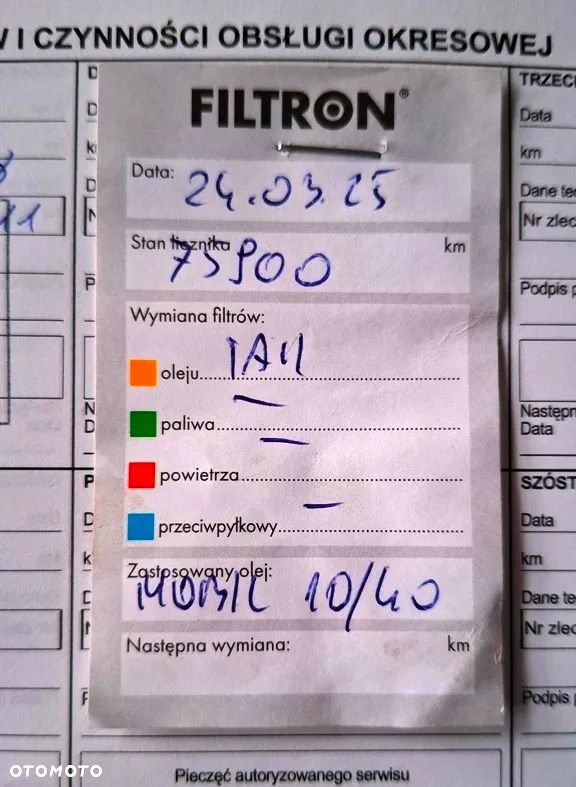 W I CZYNNOŚCI OBSŁUGI OKRESOWEJ
FILTRON®
Data: 24.03.25
Stan licznika 75900 km
Wymiana filtrów:
oleju TAK
paliwa —
powietrza —
przeciwpyłkowy —
Zastosowany olej:
MOBIL 10/40
Następna wymiana: km
11
TRZECI
Data
km
Dane te
Nr zlec
Podpis p
Następn
Data
SZÓST
Data
km
Dane te
Nr zlec
Podpis p
Pieczęć autoryzowanego serwisu
OTOMOTO